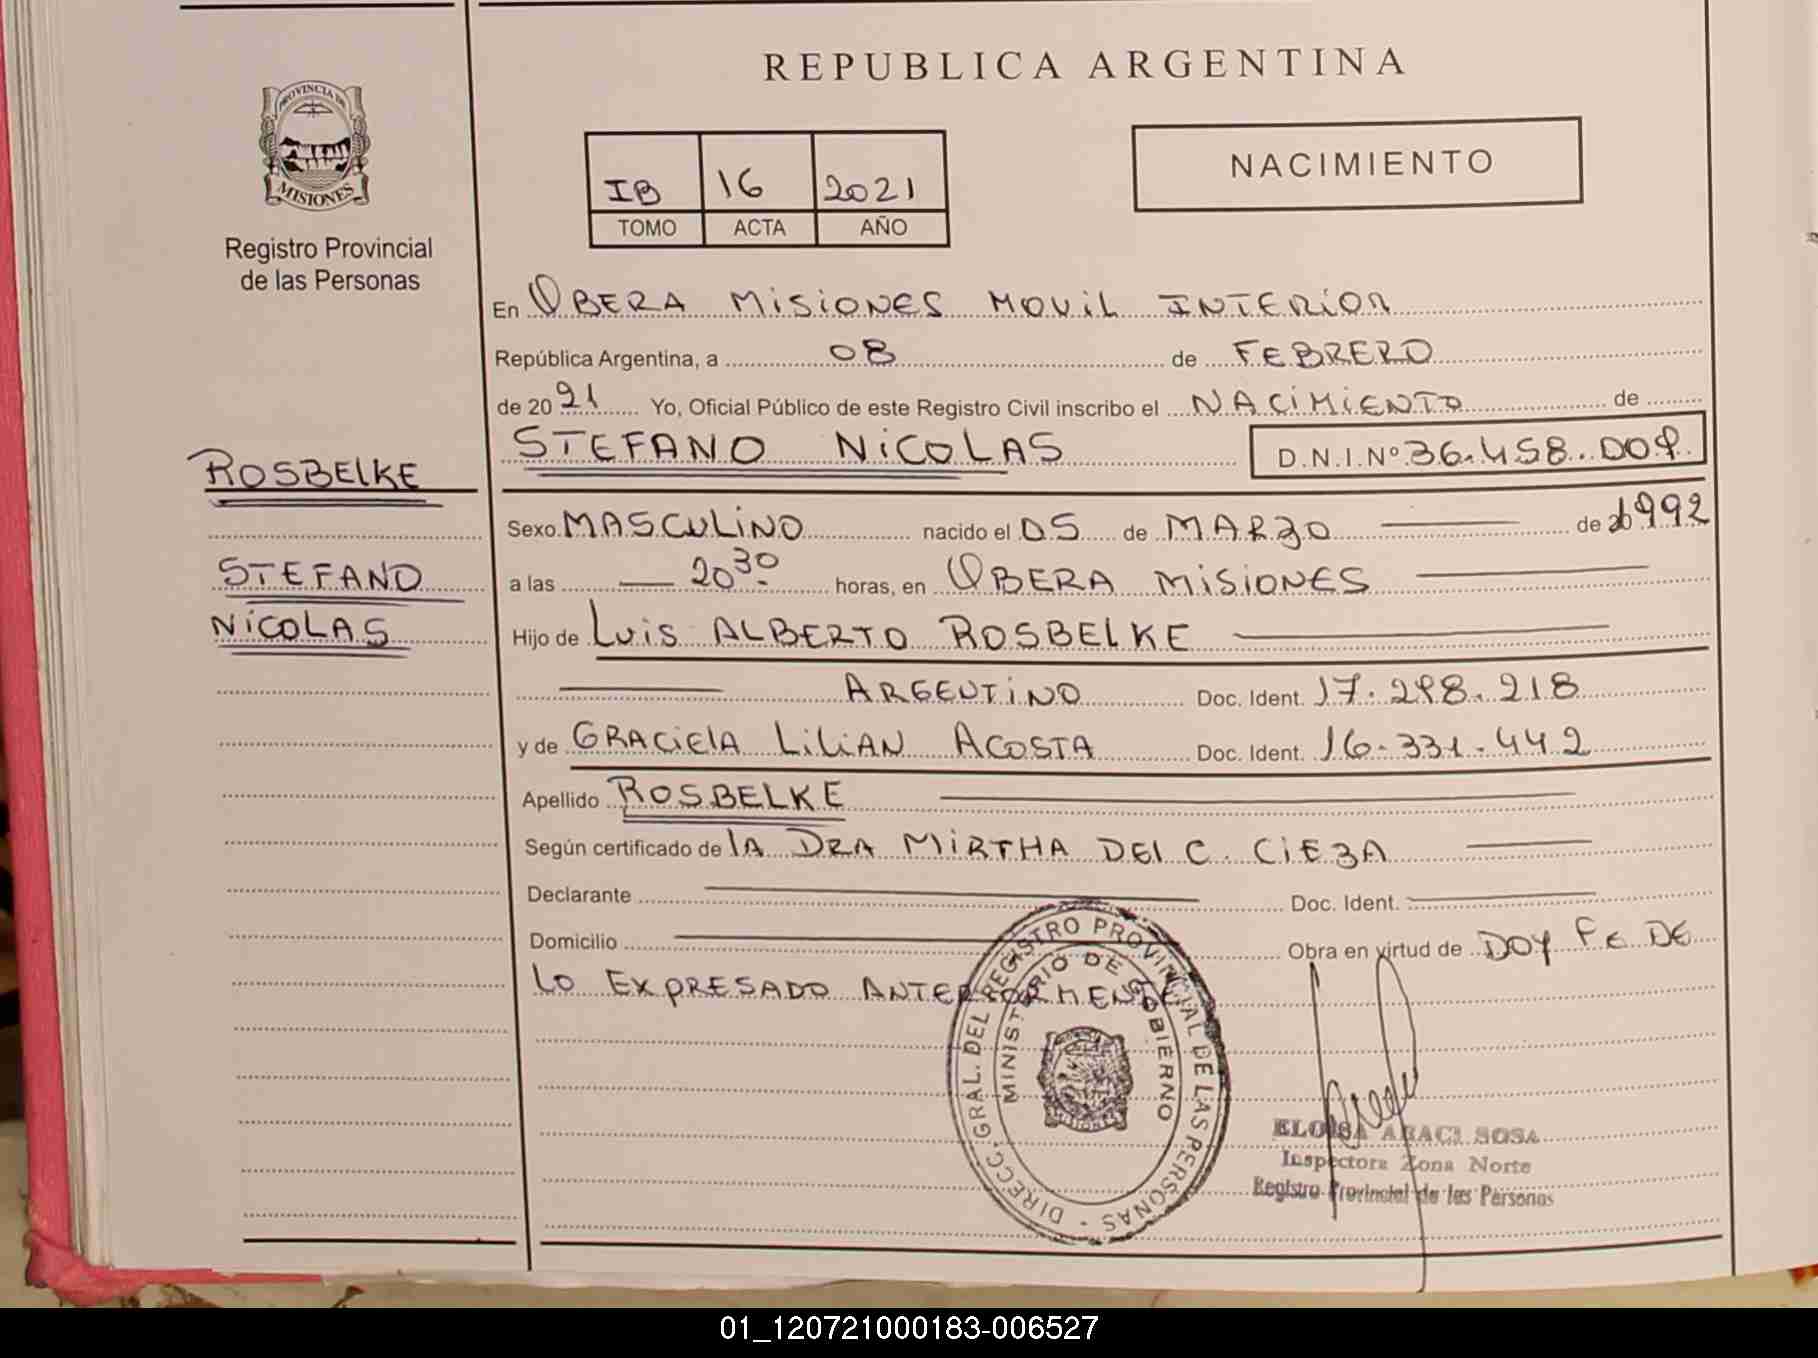 REPUBLICA ARGENTINA
PROVINCIA DE
MISIONES
Registro Provincial
de las Personas
IB 16 2021
TOMO ACTA AÑO
NACIMIENTO
En OBERA MISIONES MOVIL INTERIOR
República Argentina, a 08 de FEBRERO
de 2021 Yo, Oficial Público de este Registro Civil inscribo el NACIMIENTO de
STEFANO NICOLAS D.N.I.Nº 36.458.009
ROSBELKE
STEFANO
NICOLAS
Sexo MASCULINO nacido el 05 de MARZO de 1992
a las 20 30 horas, en OBERA MISIONES
Hijo de LUIS ALBERTO ROSBELKE
ARGENTINO Doc. Ident. 17.298.218
y de GRACIELA LILIAN ACOSTA Doc. Ident. 16.331.442
Apellido ROSBELKE
Según certificado de LA DRA MIRTHA DEL C. CIEZA
Declarante Doc. Ident.
Domicilio Obra en virtud de DOY FE DE
LO EXPRESADO ANTERIORMENTE
DIRECC. GRAL. DEL REGISTRO PROVINCIAL DE LAS PERSONAS -
MINISTERIO DE GOBIERNO
ELOISA ARACI SOSA
Inspectora Zona Norte
Registro Provincial de las Personas
01_120721000183-006527